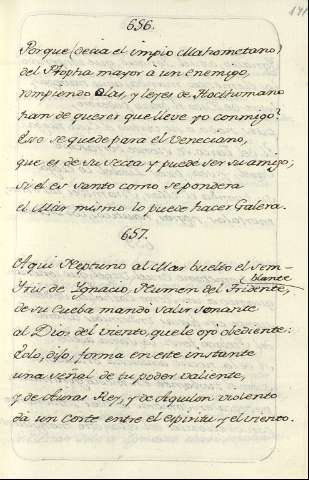 656.
Porque (decia el impio Mahometano)
del Propha mayor à un enemigo,
rompiendo Alas, y leyes de Hoclhomano
han de querer que lleve yo conmigo?
Esso se quede para el Veneciano,
que es de su secta y puede ser su amigo;
si él es santo como se pondera
el Mar mismo lo puede hacer Galera.
657.
Aqui Neptuno al Mar buelto el sem-
blante
Yris de Ygnacio, Numen del Tridente,
de su Cueba mandó salir sonante
al Dios del viento, que le oyó obediente:
Eolo, dijo, forma en este instante
una señal de tu poder valiente,
y de Auras Rey, y de Aquilon violento
da un corte entre el Espiritu y el viento.